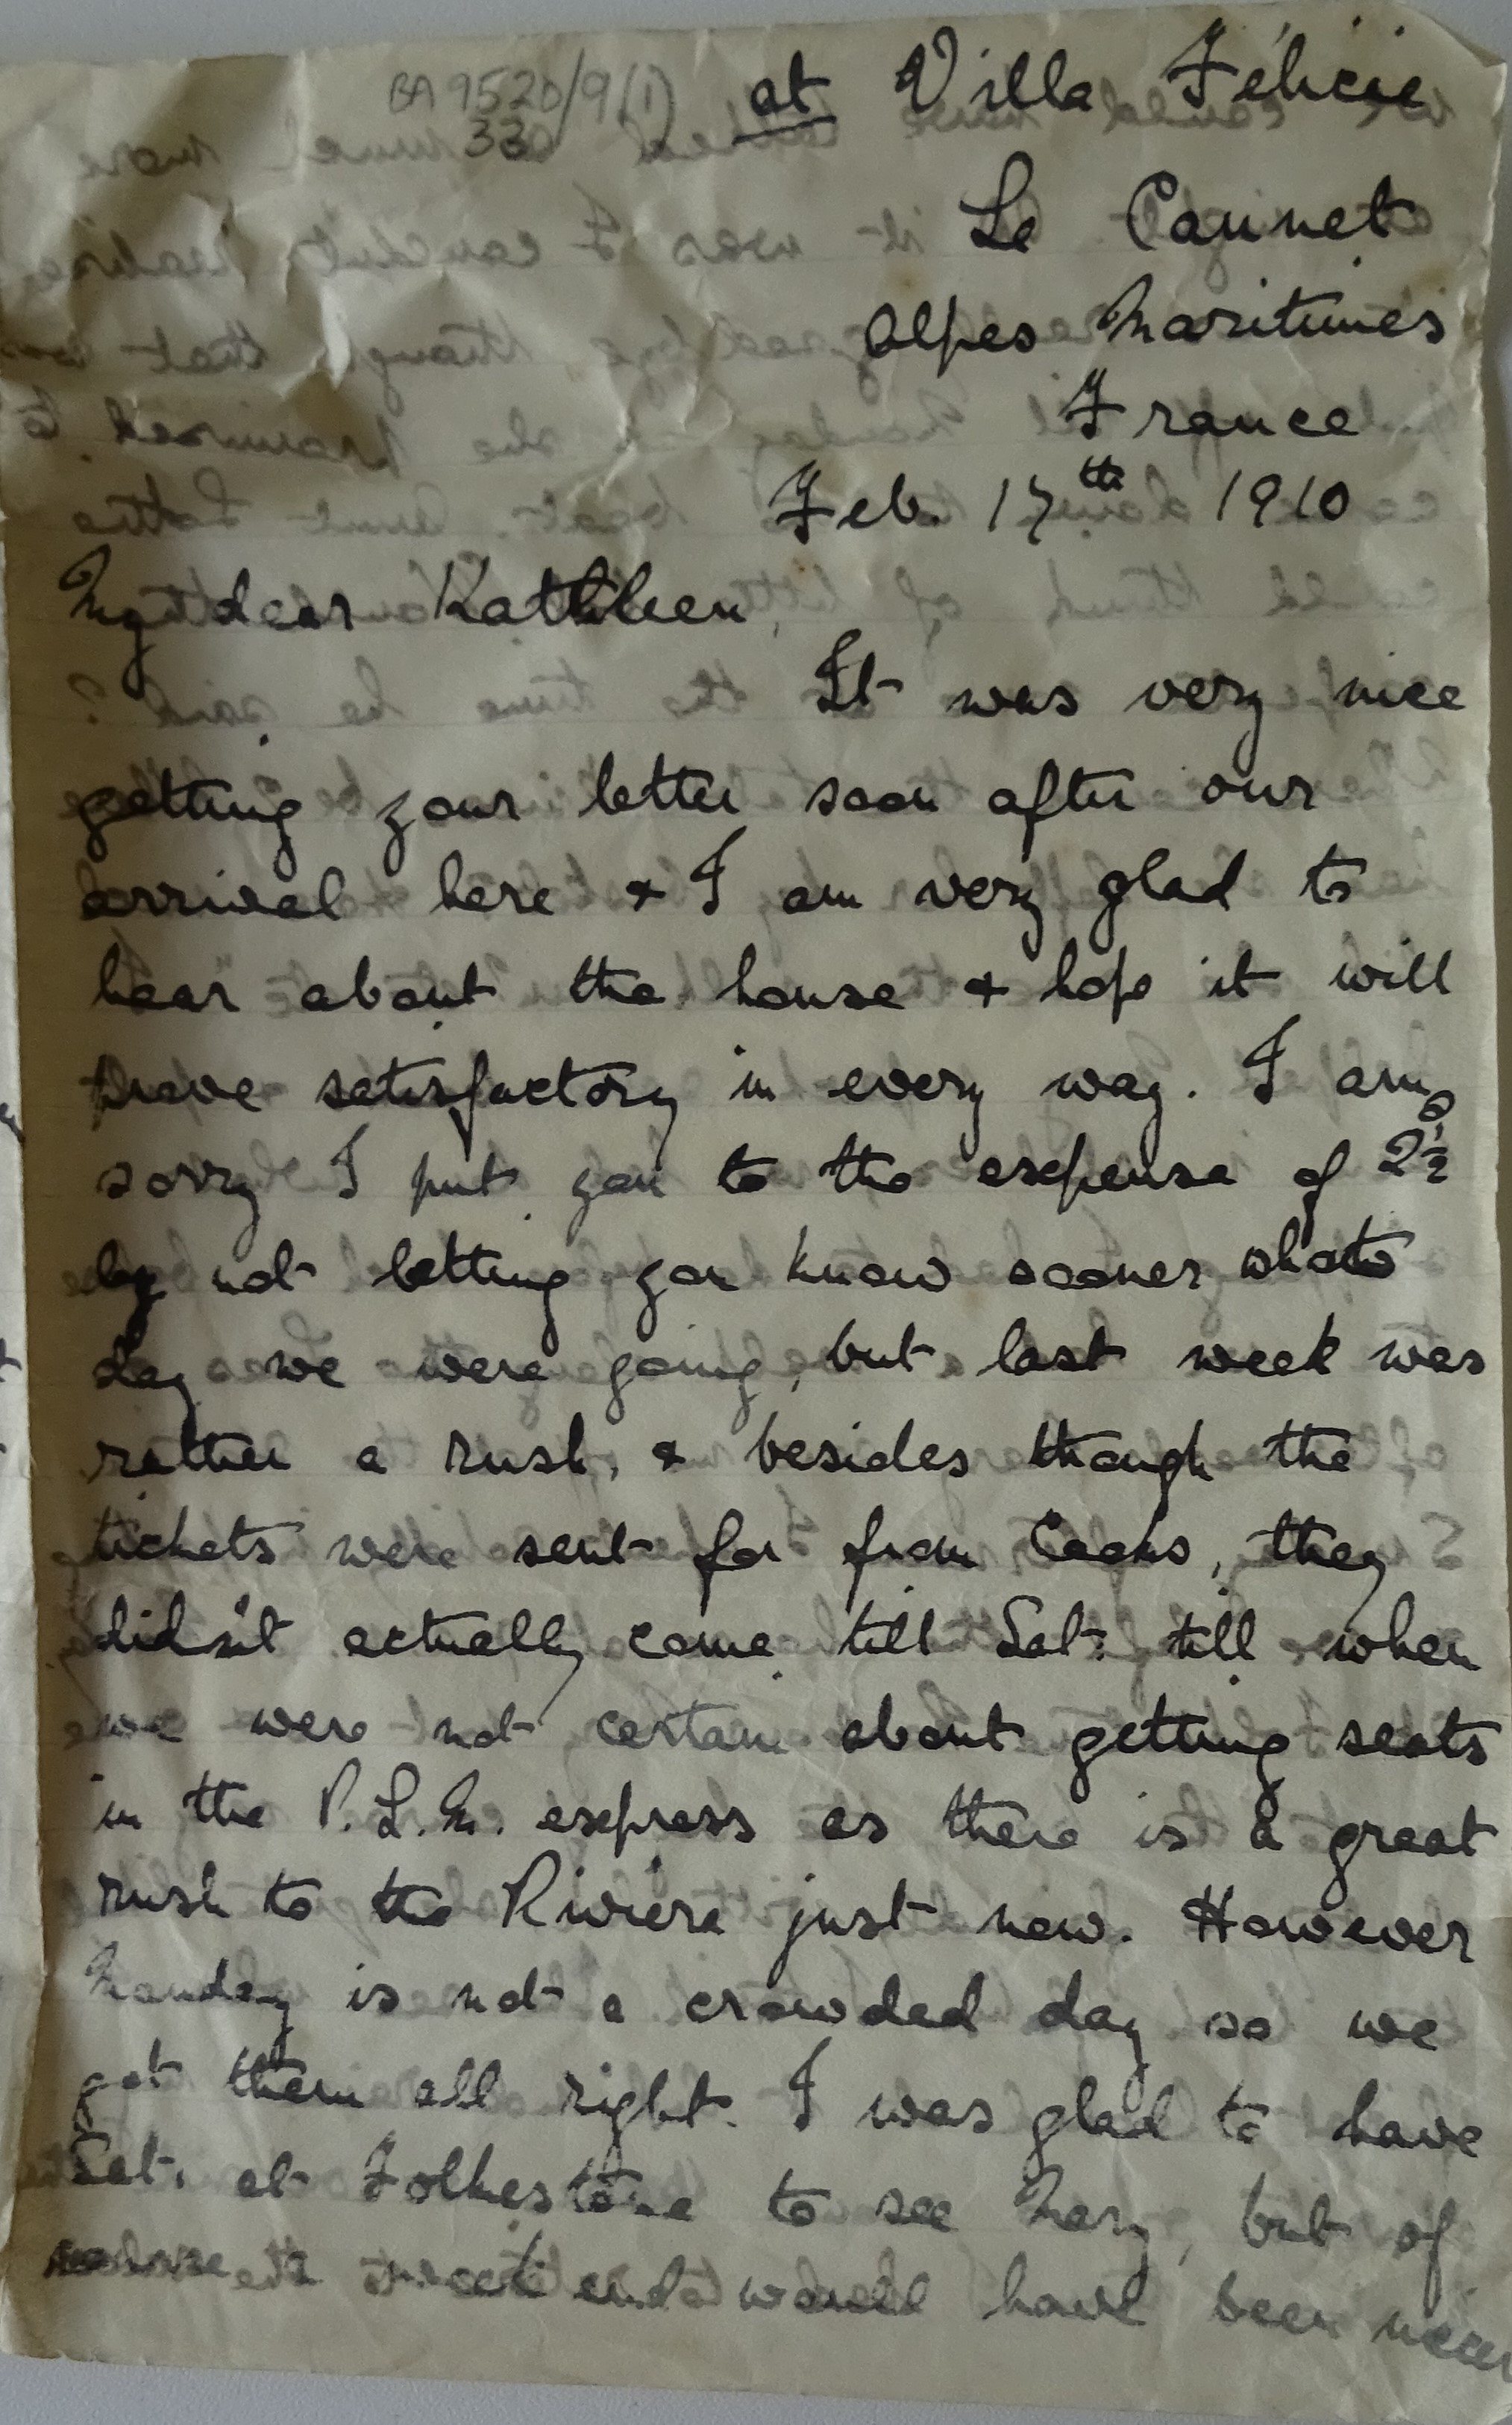 BA 9520/9(1)
330
at Villa Félicie
Le Cannet
Alpes Maritimes
France
Feb. 17th 1910
My dear Kathleen,
It was very nice
getting your letter soon after our
arrival here & I am very glad to
hear about the house & hope it will
prove satisfactory in every way. I am
sorry I put you to the expense of 2½d
by not letting you know sooner what
day we were going, but last week was
rather a rush, & besides though the
tickets were sent for from Cooks, they
didn't actually come till Sat. till when
we were not certain about getting seats
in the P.L.M. express as there is a great
rush to the Riviera just now. However
Monday is not a crowded day so we
got them all right. I was glad to have
Sat. at Folkestone to see Mary, but of
course a week end would have been nicer